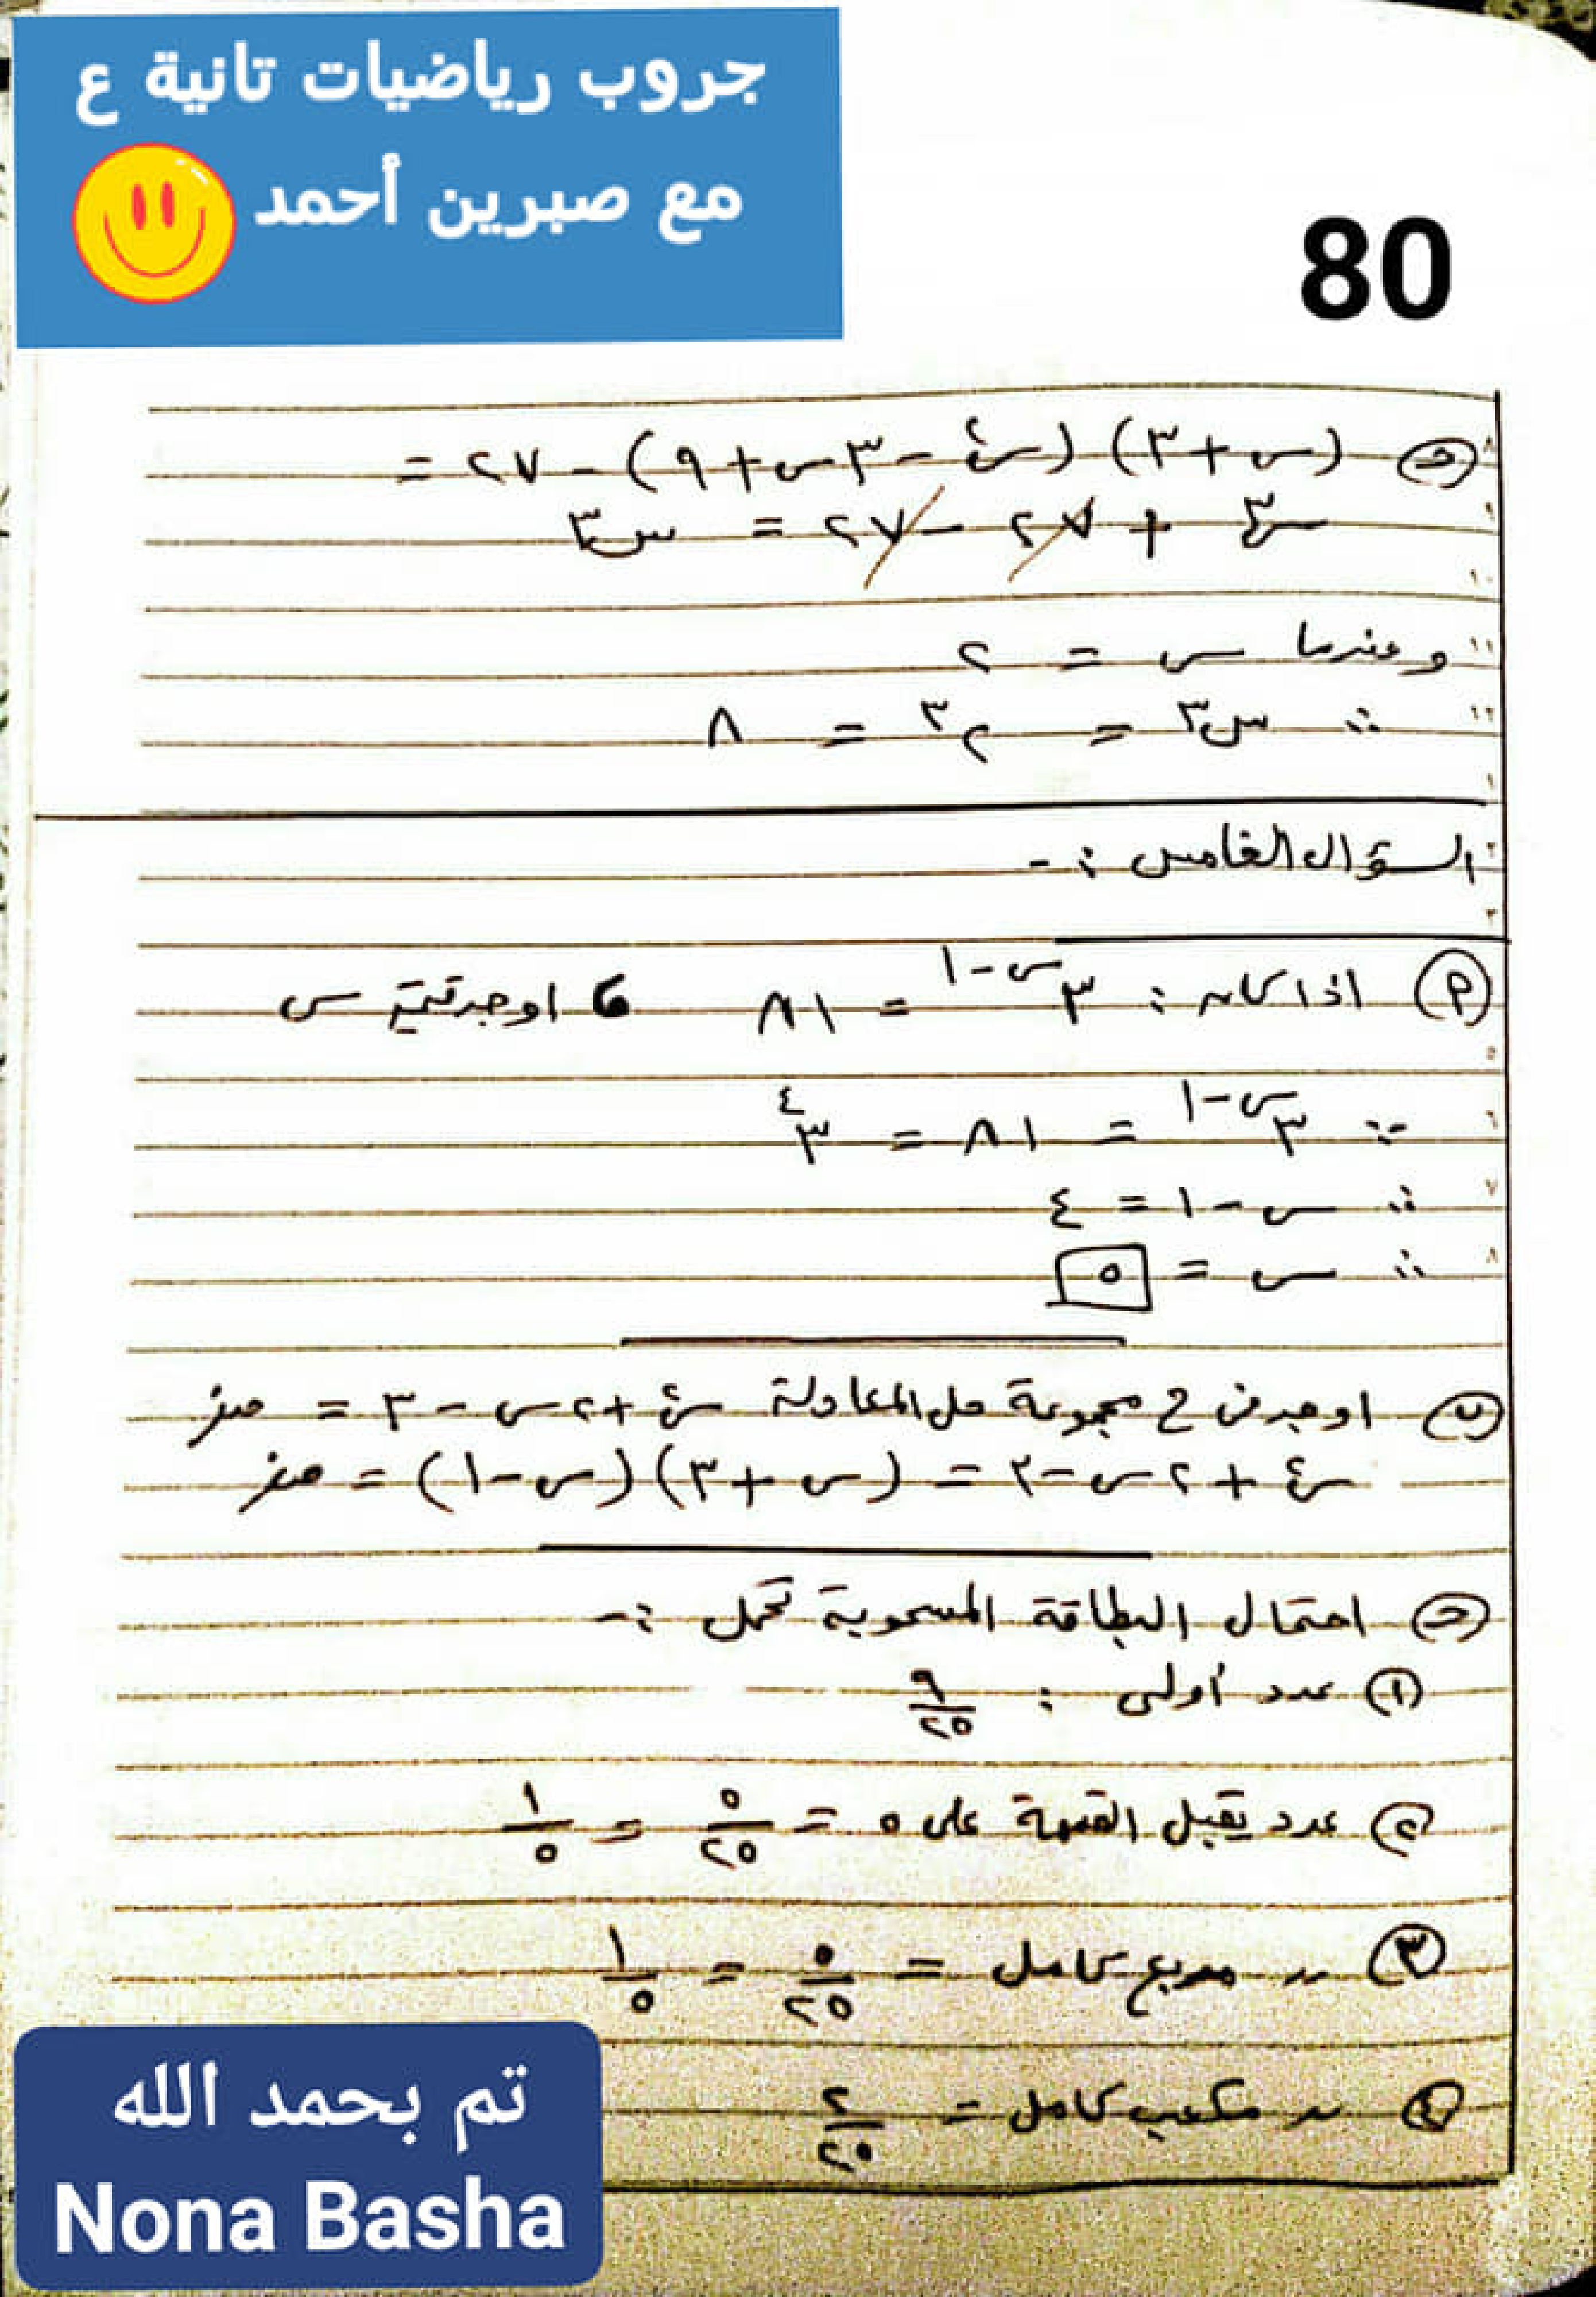 جروب رياضيات تانية ع
مع صبرين أحمد
80
(ج) (س+٣) (س٢-٣س+٩)-٢٧=
س٣ + ٢٧ - ٢٧ = س٣
وعندما س = ٢
∴ س٣ = ٢٣ = ٨
السؤال الخامس :-
(P) اذا كان : ٣س-١ = ٨١ ، اوجد قيمة س
∵ ٣س-١ = ٨١ = ٣٤
∴ س-١ = ٤
∴ س = ٥
(ب) اوجد فى ح مجموعة حل المعادلة س٢+٢س-٣ = صفر
س٢+٢س-٣ = (س+٣)(س-١) = صفر
(ج) احتمال البطاقة المسحوبة تحمل :-
(١) عدد أولى : ٩/٢٥
(٢) عدد يقبل القسمة على ٥ = ٥/٢٥ = ١/٥
(٣) 〃 مربع كامل = ٥/٢٥ = ١/٥
(٤) 〃 مكعب كامل = ٢/٢٥
تم بحمد الله
Nona Basha